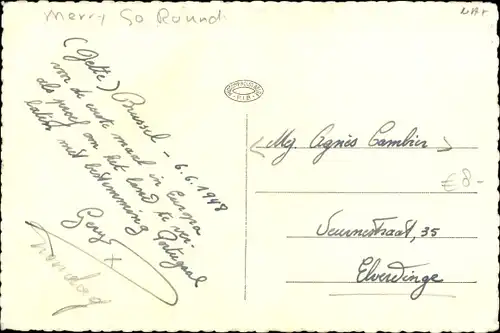 Merry Go Round
(Jette) Brussel - 6.6.1948
voor de eerste maal in Europa
als proef om het land te ver-
laten met bestemming Portugal
Mej. Agnès Cambier
€8-
Veurnestraat, 35
Elverdinge